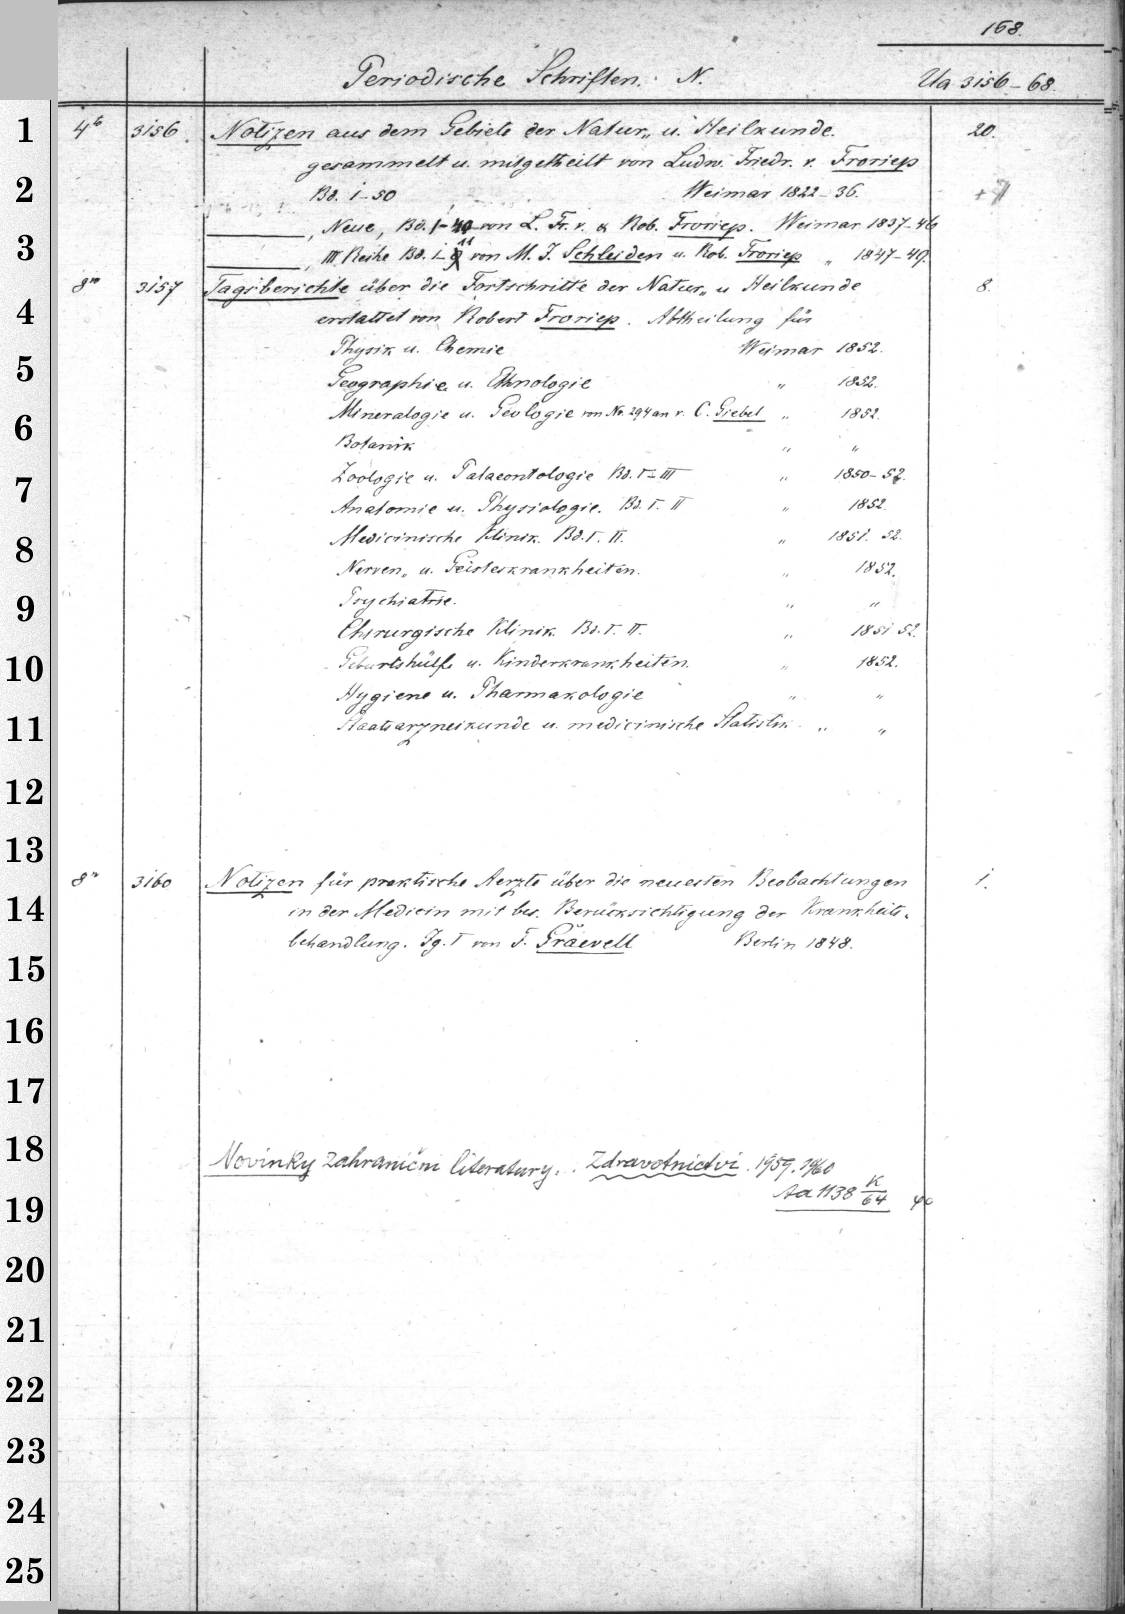 168.
Periodische Schriften. N. Ua 3156-68.
1 4° 3156. Notizen aus dem Gebiete der Natur„ u. Heilkunde. 20.
gesammelt u. mitgetheilt von Ludw. Friedr. v. Froriep
2 Bd. 1-50 Weimar 1822-36.
———, Neue, Bd. 1-40 von L. Fr. v. & Rob. Froriep. Weimar 1837-46
3 ———, III. Reihe Bd. 1- 11 von M. J. Schleiden u. Rob. Froriep „ 1847-49.
8° 3157 Tagsberichte über die Fortschritte der Natur„ u Heilkunde 8.
4 erstattet von Robert Froriep. Abtheilung für
Physik u. Chemie Weimar 1852.
5 Geographie u. Ethnologie „ 1852.
Mineralogie u. Geologie von No. 294 an v. C. Giebel „ 1852.
6 Botanik „ „
7 Zoologie u. Palaeontologie Bd. I-III „ 1850-52.
Anatomie u. Physiologie. Bd. I. II „ 1852.
8 Medicinische Klinik. Bd. I. II. „ 1851. 52.
Nerven„ u. Geisteskrankheiten. „ 1852.
9 Psychiatrie. „ „
Chirurgische Klinik. Bd. I. II. „ 1851 52.
10 Geburtshülfe u. Kinderkrankheiten. „ 1852.
Hygiene u. Pharmakologie „ „
11 Staatsarzneikunde u. medicinische Statistik. „ „
12
13
8° 3160 Notizen für praktische Aerzte über die neuesten Beobachtungen 1.
14 in der Medicin mit bes. Berücksichtigung der Krankheits„
behandlung. Jg. I von F. Gräevell Berlin 1848.
15
16
17
18 Novinky zahraniční literatury. Zdravotnictví. 1959. 1960
19 Aa 1138 K/64
20
21
22
23
24
25